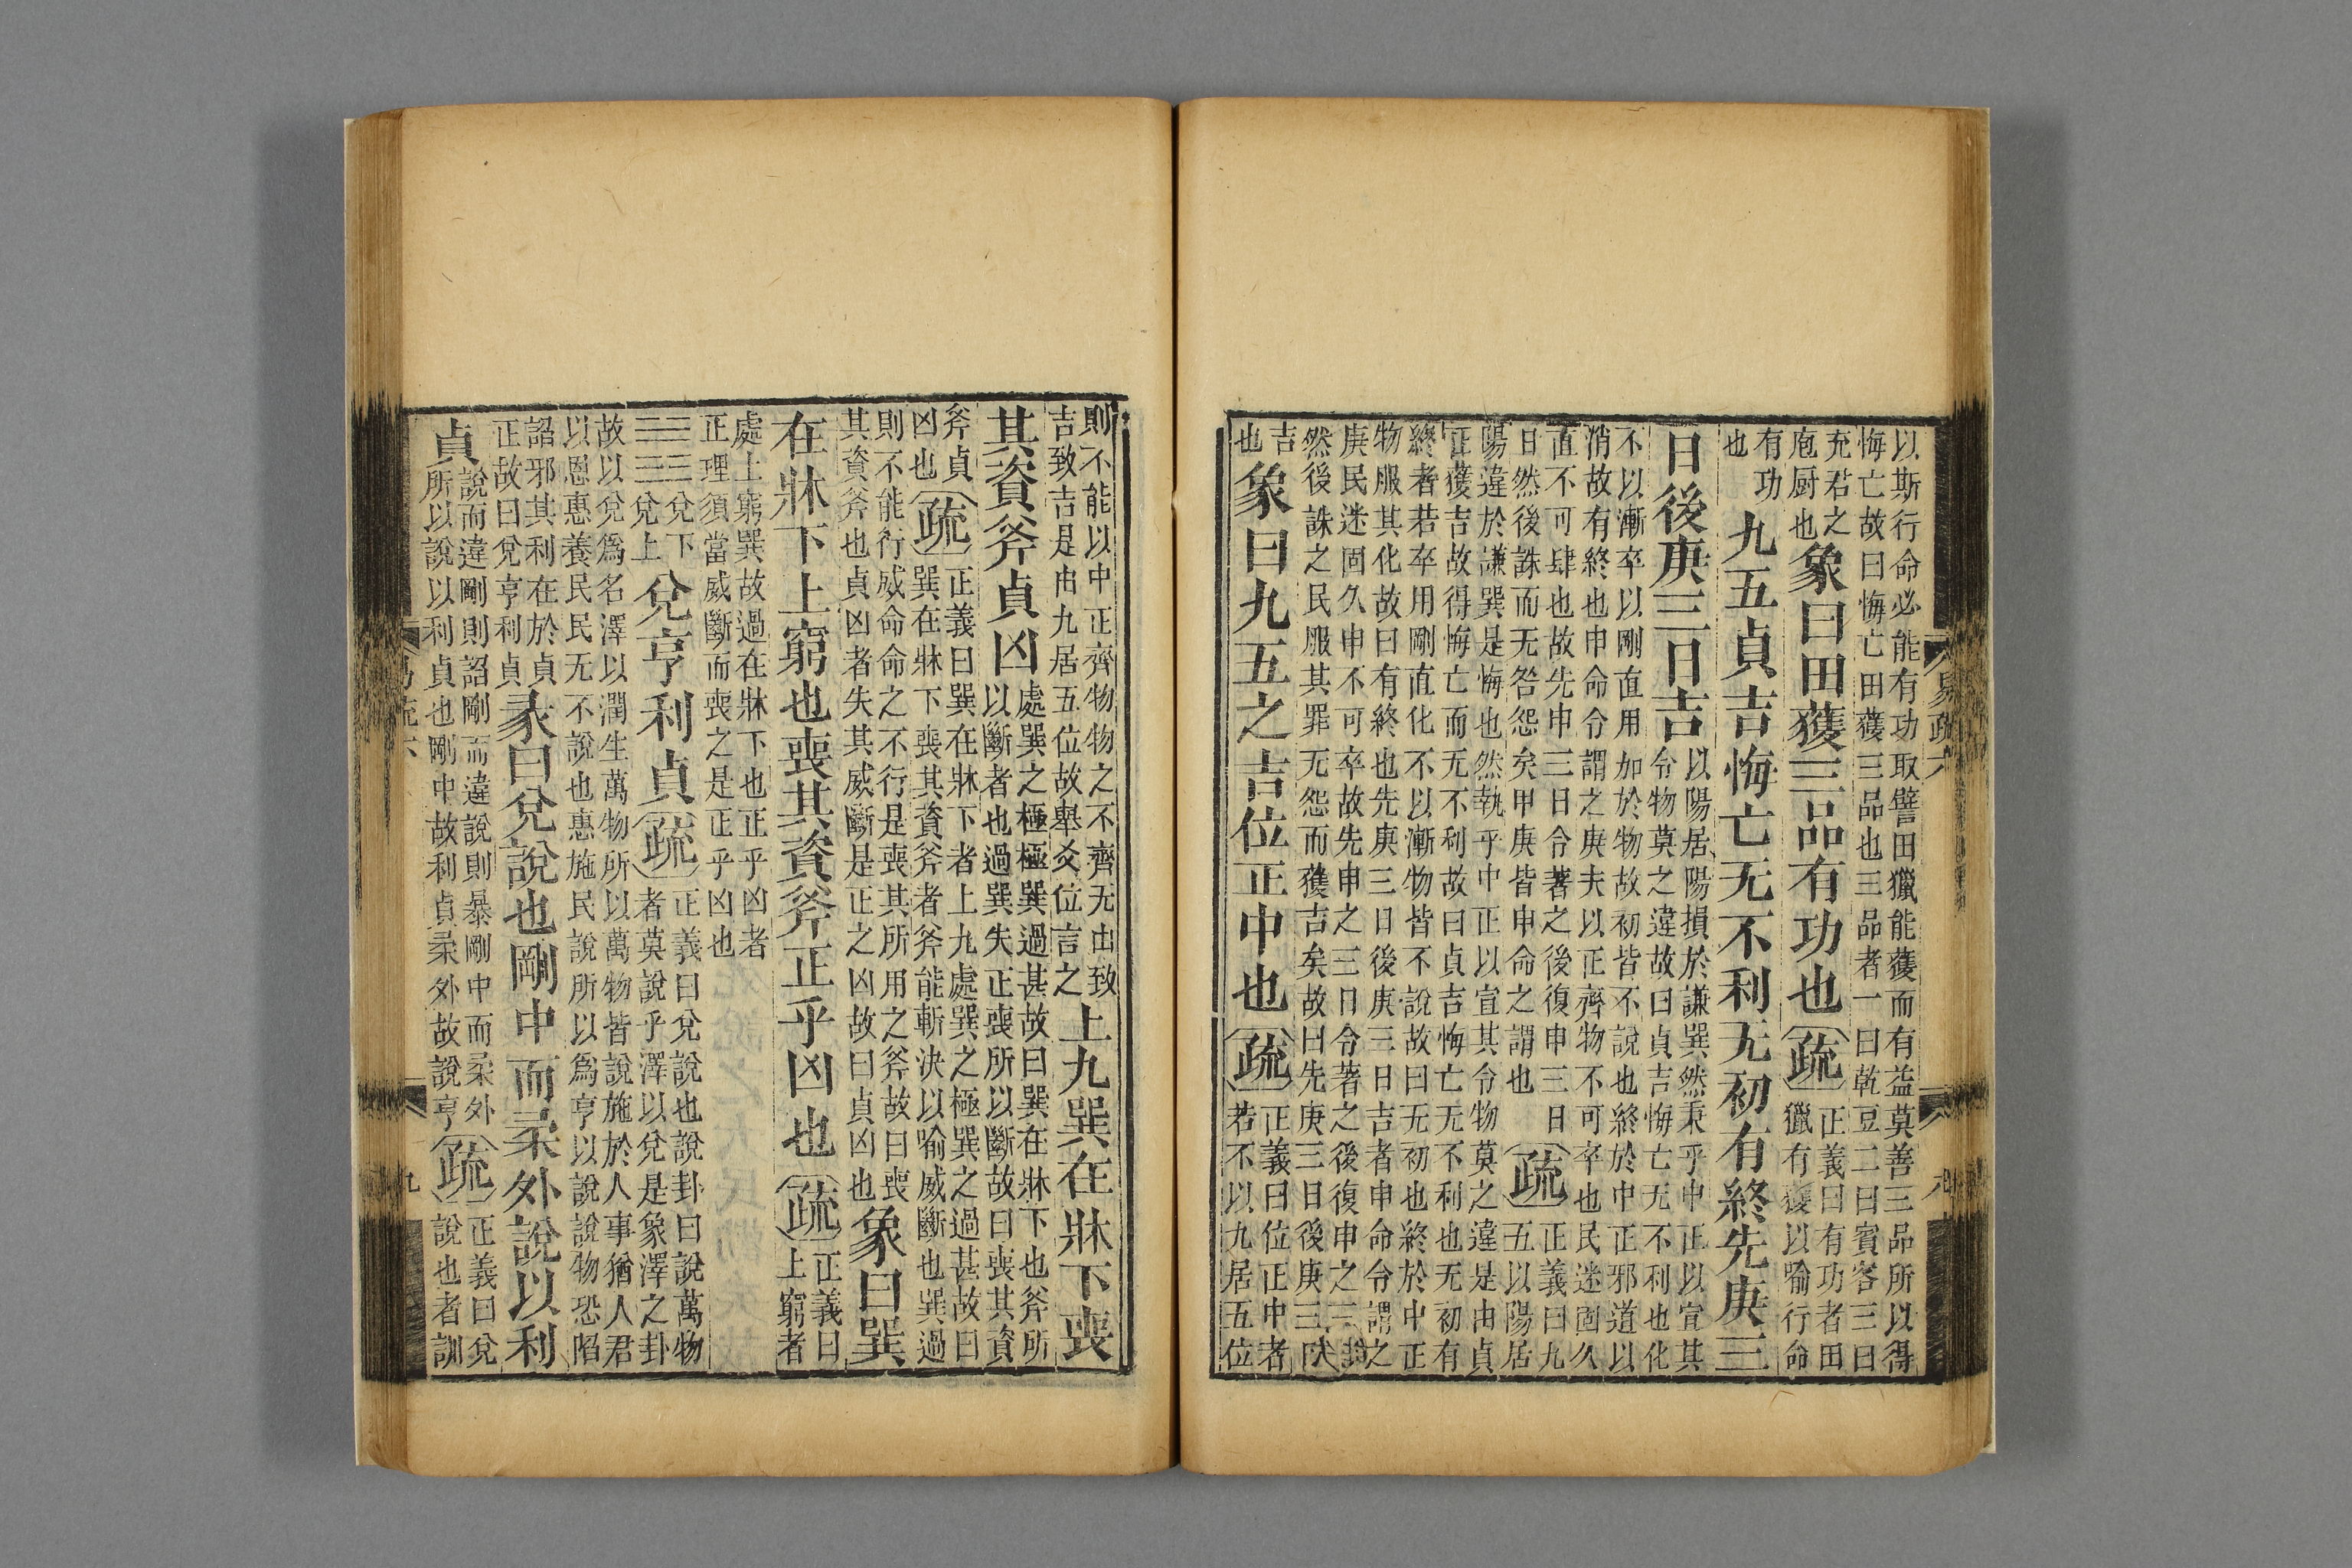 以斯行命必能有功取譬田獵能獲而有益莫善三品所以得
悔亡故曰悔亡田獲三品也三品者一曰乾豆二曰賓客三曰
充君之庖厨也象曰田獲三品有功也疏正義曰有功者田獵有獲以喻行命
有功也九五貞吉悔亡无不利无初有終先庚三
日後庚三日吉以陽居陽損於謙巽然秉乎中正以宣其令物莫之違故曰貞吉悔亡无不利也化
不以漸卒以剛直用加於物故初皆不說也終於中正邪道以
消故有終也申命令謂之庚夫以正齊物不可卒也民迷固久
直不可肆也故先申三日令著之後復申三日日然後誅而无咎怨矣甲庚皆申命之謂也疏正義曰九五以陽居
陽違於謙巽是悔也然執乎中正以宣其令物莫之違是由貞
正獲吉故得悔亡而无不利故曰貞吉悔亡无不利也无初有
終者若卒用剛直化不以漸物皆不說故曰无初也終於中正
物服其化故曰有終也先庚三日後庚三日吉者申命令謂之
庚民迷固久申不可卒故先申之三日令著之後復申之三
然後誅之民服其罪无怨而獲吉矣故曰先庚三日後庚三
吉也象曰九五之吉位正中也疏正義曰位正中者若不以九居五位
易疏六
九
則不能以中正齊物物之不齊无由致
吉致吉是由九居五位故舉爻位言之上九巽在牀下喪
其資斧貞凶處巽之極極巽過甚故曰巽在牀下也斧所以斷者也過巽失正喪所以斷故曰喪其資
斧貞凶也疏正義曰巽在牀下者上九處巽之極巽之過甚故曰巽在牀下喪其資斧者斧能斬決以喻威斷也巽過
則不能行威命命之不行是喪其所用之斧故曰喪其資斧也貞凶者失其威斷是正之凶故曰貞凶也象曰巽
在牀下上窮也喪其資斧正乎凶也疏正義曰上窮者
處上窮巽故過在牀下也正乎凶者
正理須當威斷而喪之是正乎凶也
兌下兌上兌亨利貞疏正義曰兌說也說卦曰說萬物者莫說乎澤以兌是象澤之卦
故以兌爲名澤以潤生萬物所以萬物皆說施於人事猶人君
以恩惠養民民无不說也惠施民說所以爲亨以說說物恐陷
諂邪其利在於貞正故曰兌亨利貞彖曰兌說也剛中而柔外說以利
貞說而違剛則諂剛而違說則暴剛中而柔外所以說以利貞也剛中故利貞柔外故說亨疏正義曰兌說也者訓
九